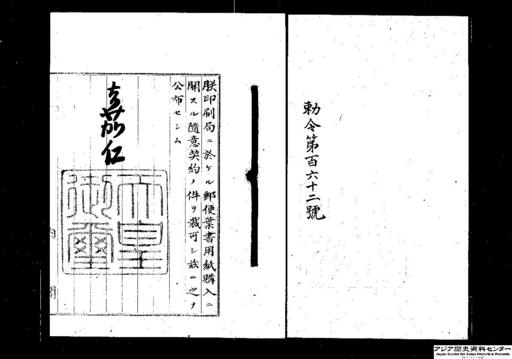 勅令第百六十二號
朕印刷局ニ於ケル郵便葉書用紙購入ニ
關スル隨意契約ノ件ヲ裁可シ玆ニ之ヲ
公布セシム
嘉仁
天皇
御璽
内閣
アジア歴史資料センター
Japan Center for Asian Historical Records